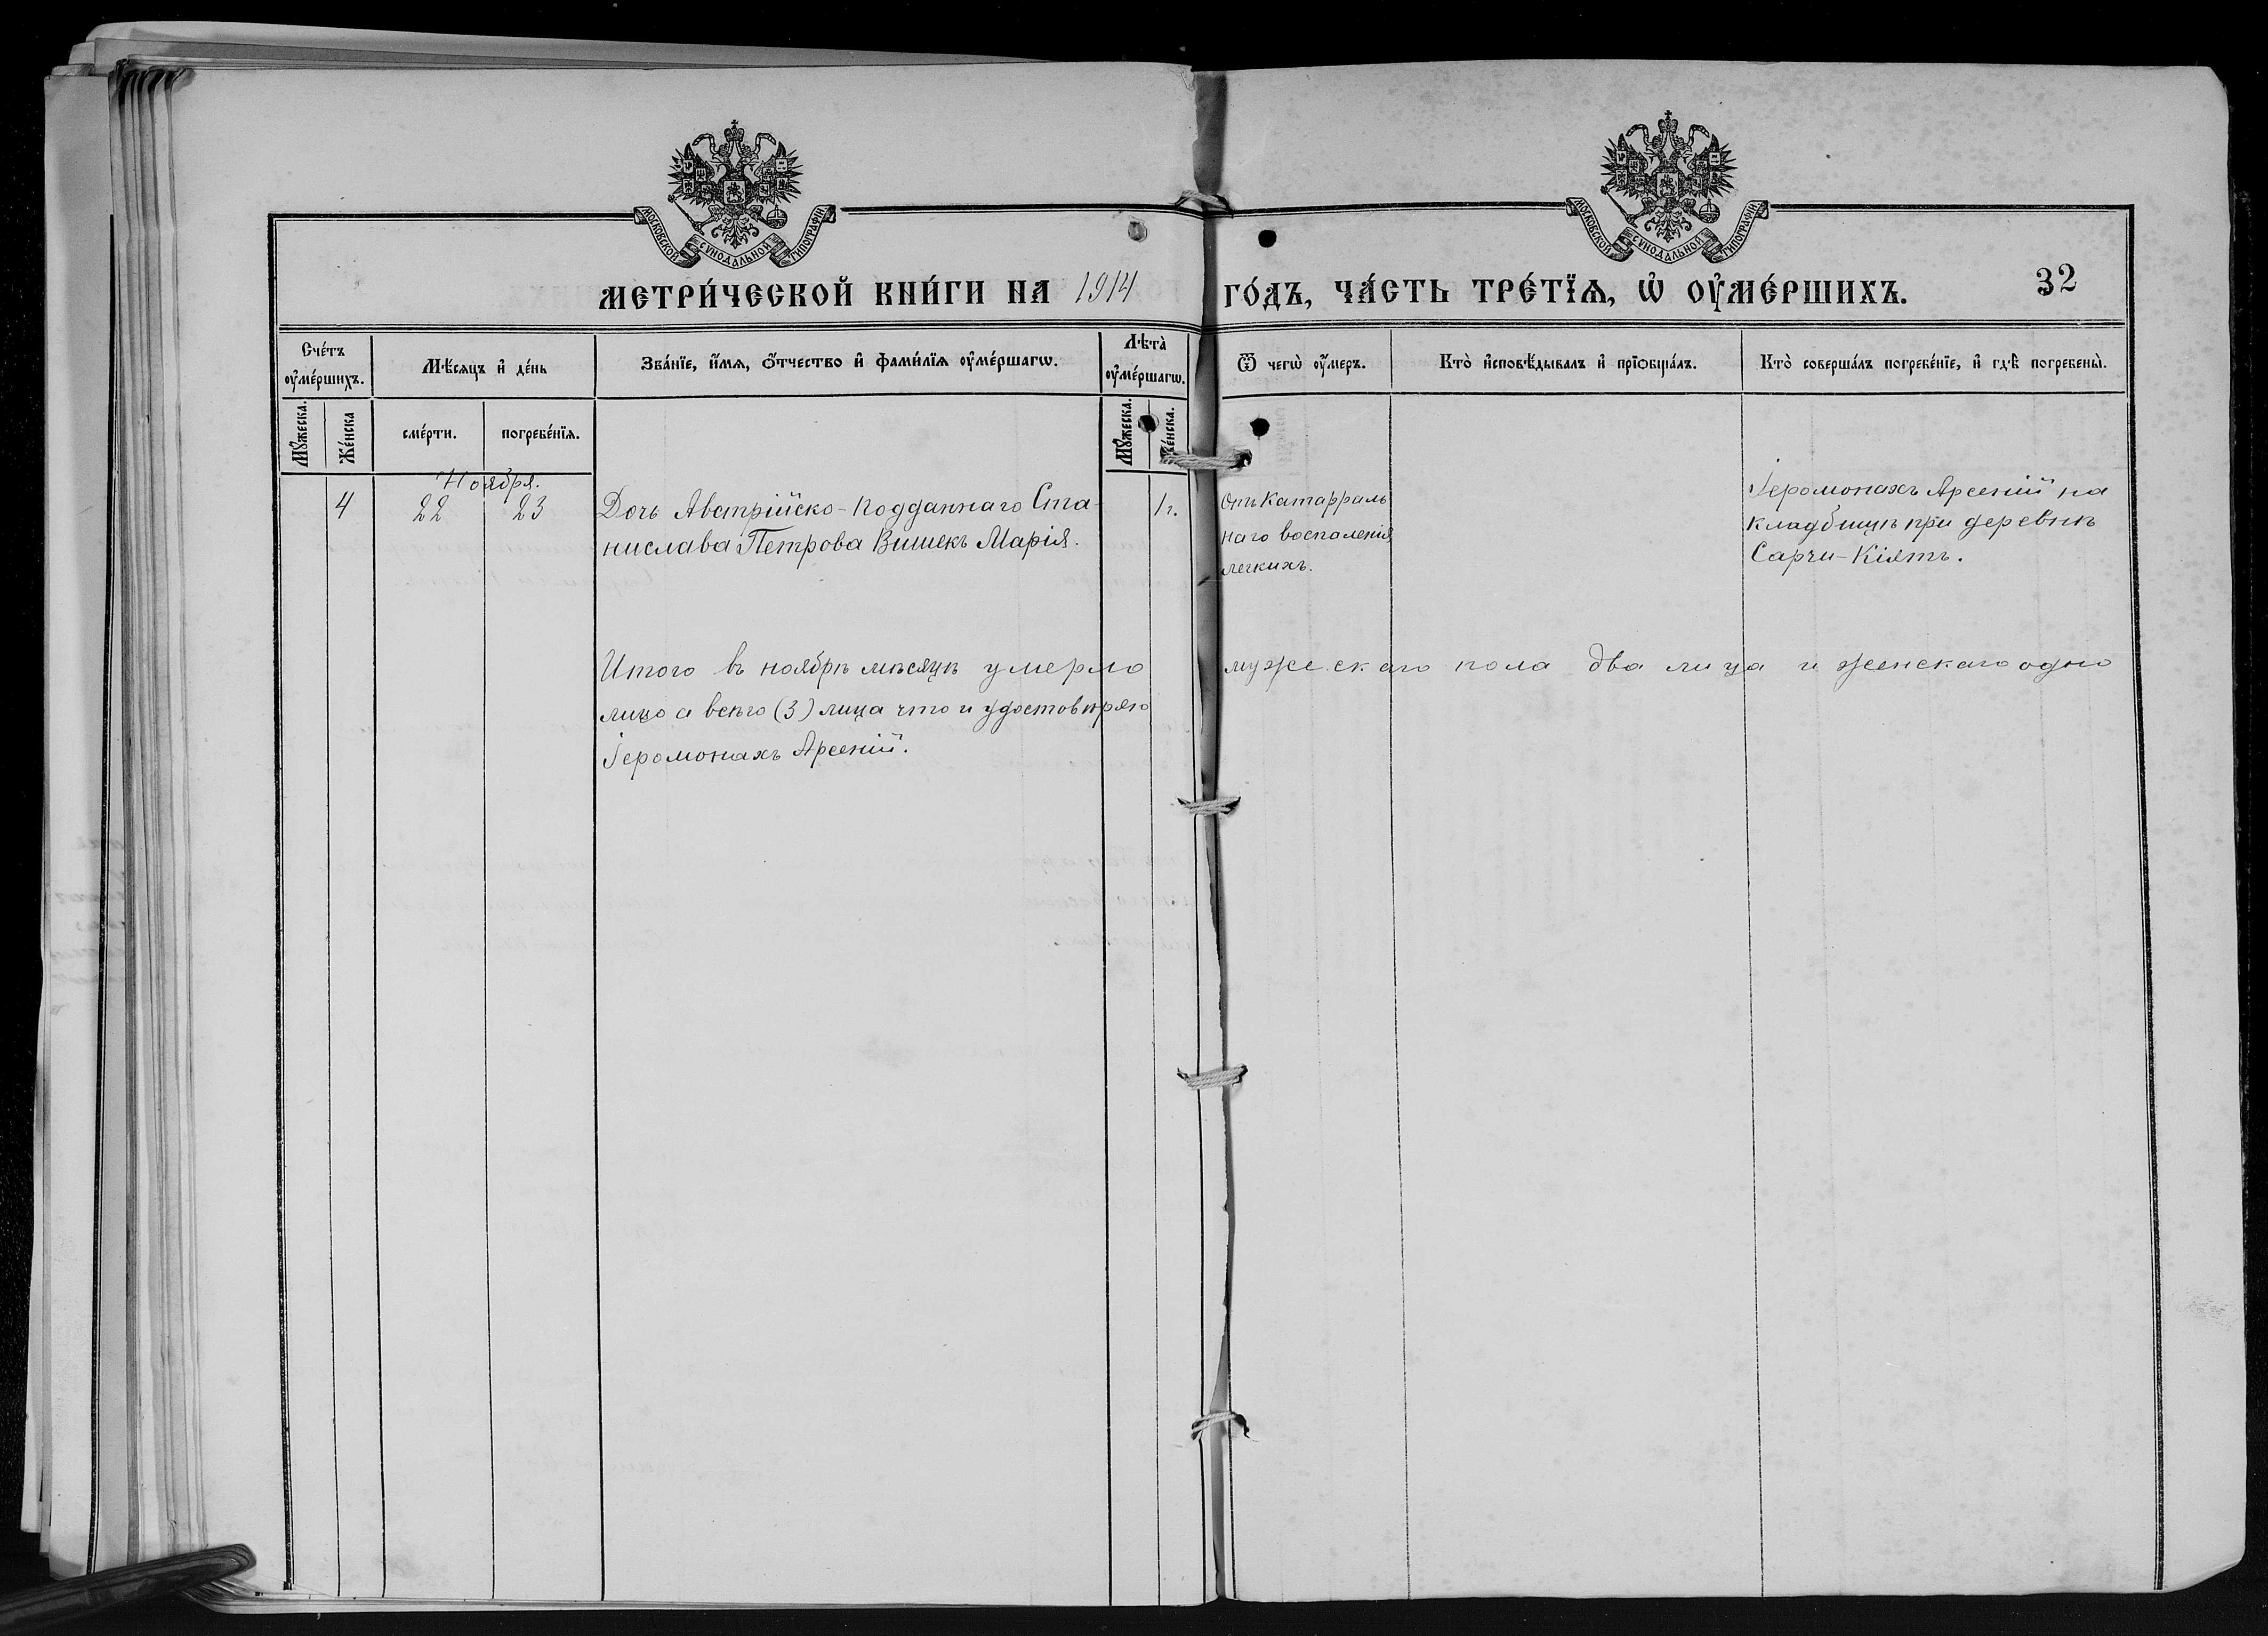 МОСКОВСКОЙ СѴНОДАЛЬНОЙ ТИПОГРАФІИ
МОСКОВСКОЙ СѴНОДАЛЬНОЙ ТИПОГРАФІИ
МЕТРИ́ЧЕСКОЙ КНИ́ГИ НА 1914 ГО́ДЪ, ЧА́СТЬ ТРЕ́ТЇѦ, Ѡ҆ ОУ҆МЕ́РШИХЪ.
32
Сче́тъ
оу҆ме́ршихъ.
Мѣ́сѧцъ и҆ де́нь
Зва́нїе, и҆́мѧ, ѻ҆́тчество и҆ фами́лїѧ оу҆ме́ршагѡ.
Лѣта̀
оу҆ме́ршагѡ.
Ѿ чегѡ̀ оу҆́меръ.
Кто̀ и҆сповѣ́дывалъ и҆ прїѡбща́лъ.
Кто̀ соверша́лъ погребе́нїе, и҆ гдѣ̀ погребены̀.
Мꙋ́жеска.
Же́нска
сме́рти.
погребе́нїѧ.
Мꙋ́жеска.
Же́нска.
Ноября.
4 22 23 Дочь Австрійско-подданнаго Ста-
нислава Петрова Вишекъ Марія.
1 г.
Отъ катарраль
наго воспаленія
легкихъ.
Іеромонахъ Арсеній на
кладбищѣ при деревнѣ
Сарчи-Кіятъ.
Итого въ ноябрѣ мѣсяцѣ умерло мужескаго пола два лица и женскаго одно
лицо а всѣго (3) лица что и удостовѣряю
Іеромонахъ Арсеній.